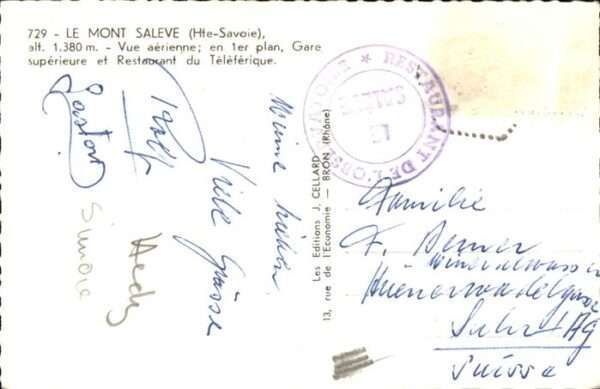 729 - LE MONT SALEVE (Hte-Savoie),
alt. 1.380 m. - Vue aérienne; en 1er plan, Gare
supérieure et Restaurant du Téléférique.
Meine Lieben
Viele Grüsse
Gaston
Simone
Hedy
Les Editions J. CELLARD
13, rue de l'Economie — BRON (Rhône)
RESTAURANT DE L'OBSERVATOIRE
Familie
F.
Mineralwasser
Suhr AG
Suisse